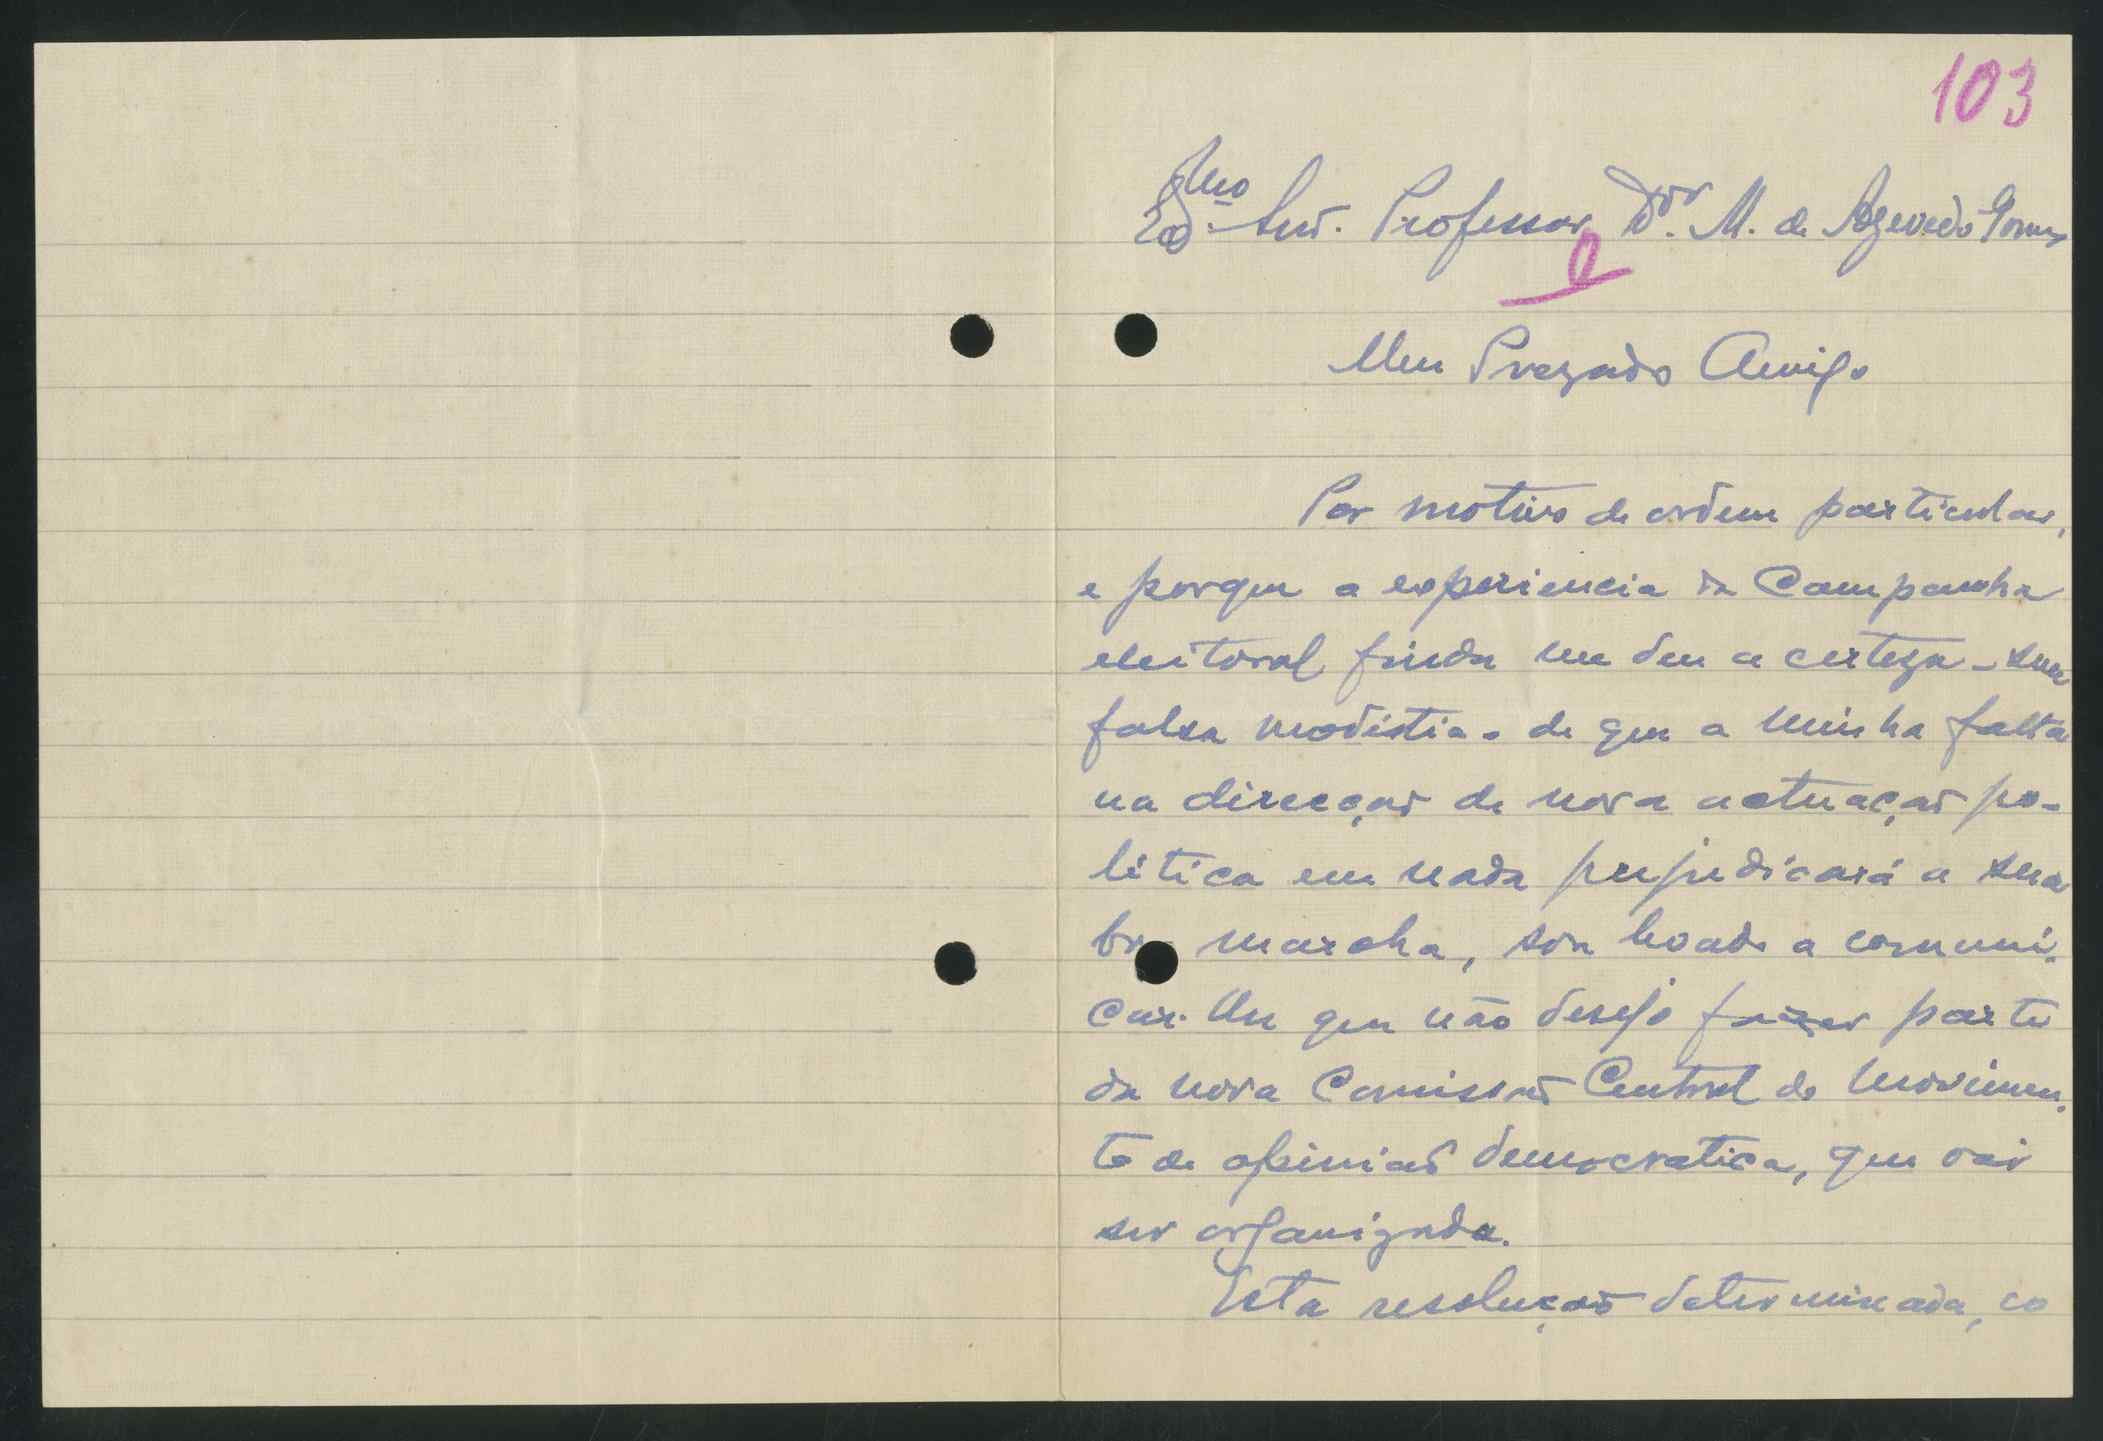 103
Exmo. Snr. Professor Dor. M. de Azevedo Gomes
Meu Prezado Amigo
Por motivo de ordem particular,
e porque a experiencia da Campanha
eleitoral finda me deu a certeza - sem
falsa modéstia - de que a minha falta
na direcção de nova actuação po-
litica em nada prejudicará a sua
marcha, sou levado a comuni-
car-lhe que não desejo fazer parte
da nova Comissão Central do Movimen-
to de opinião democratica, que vai
ser organizada.
Esta resolução determinada, co